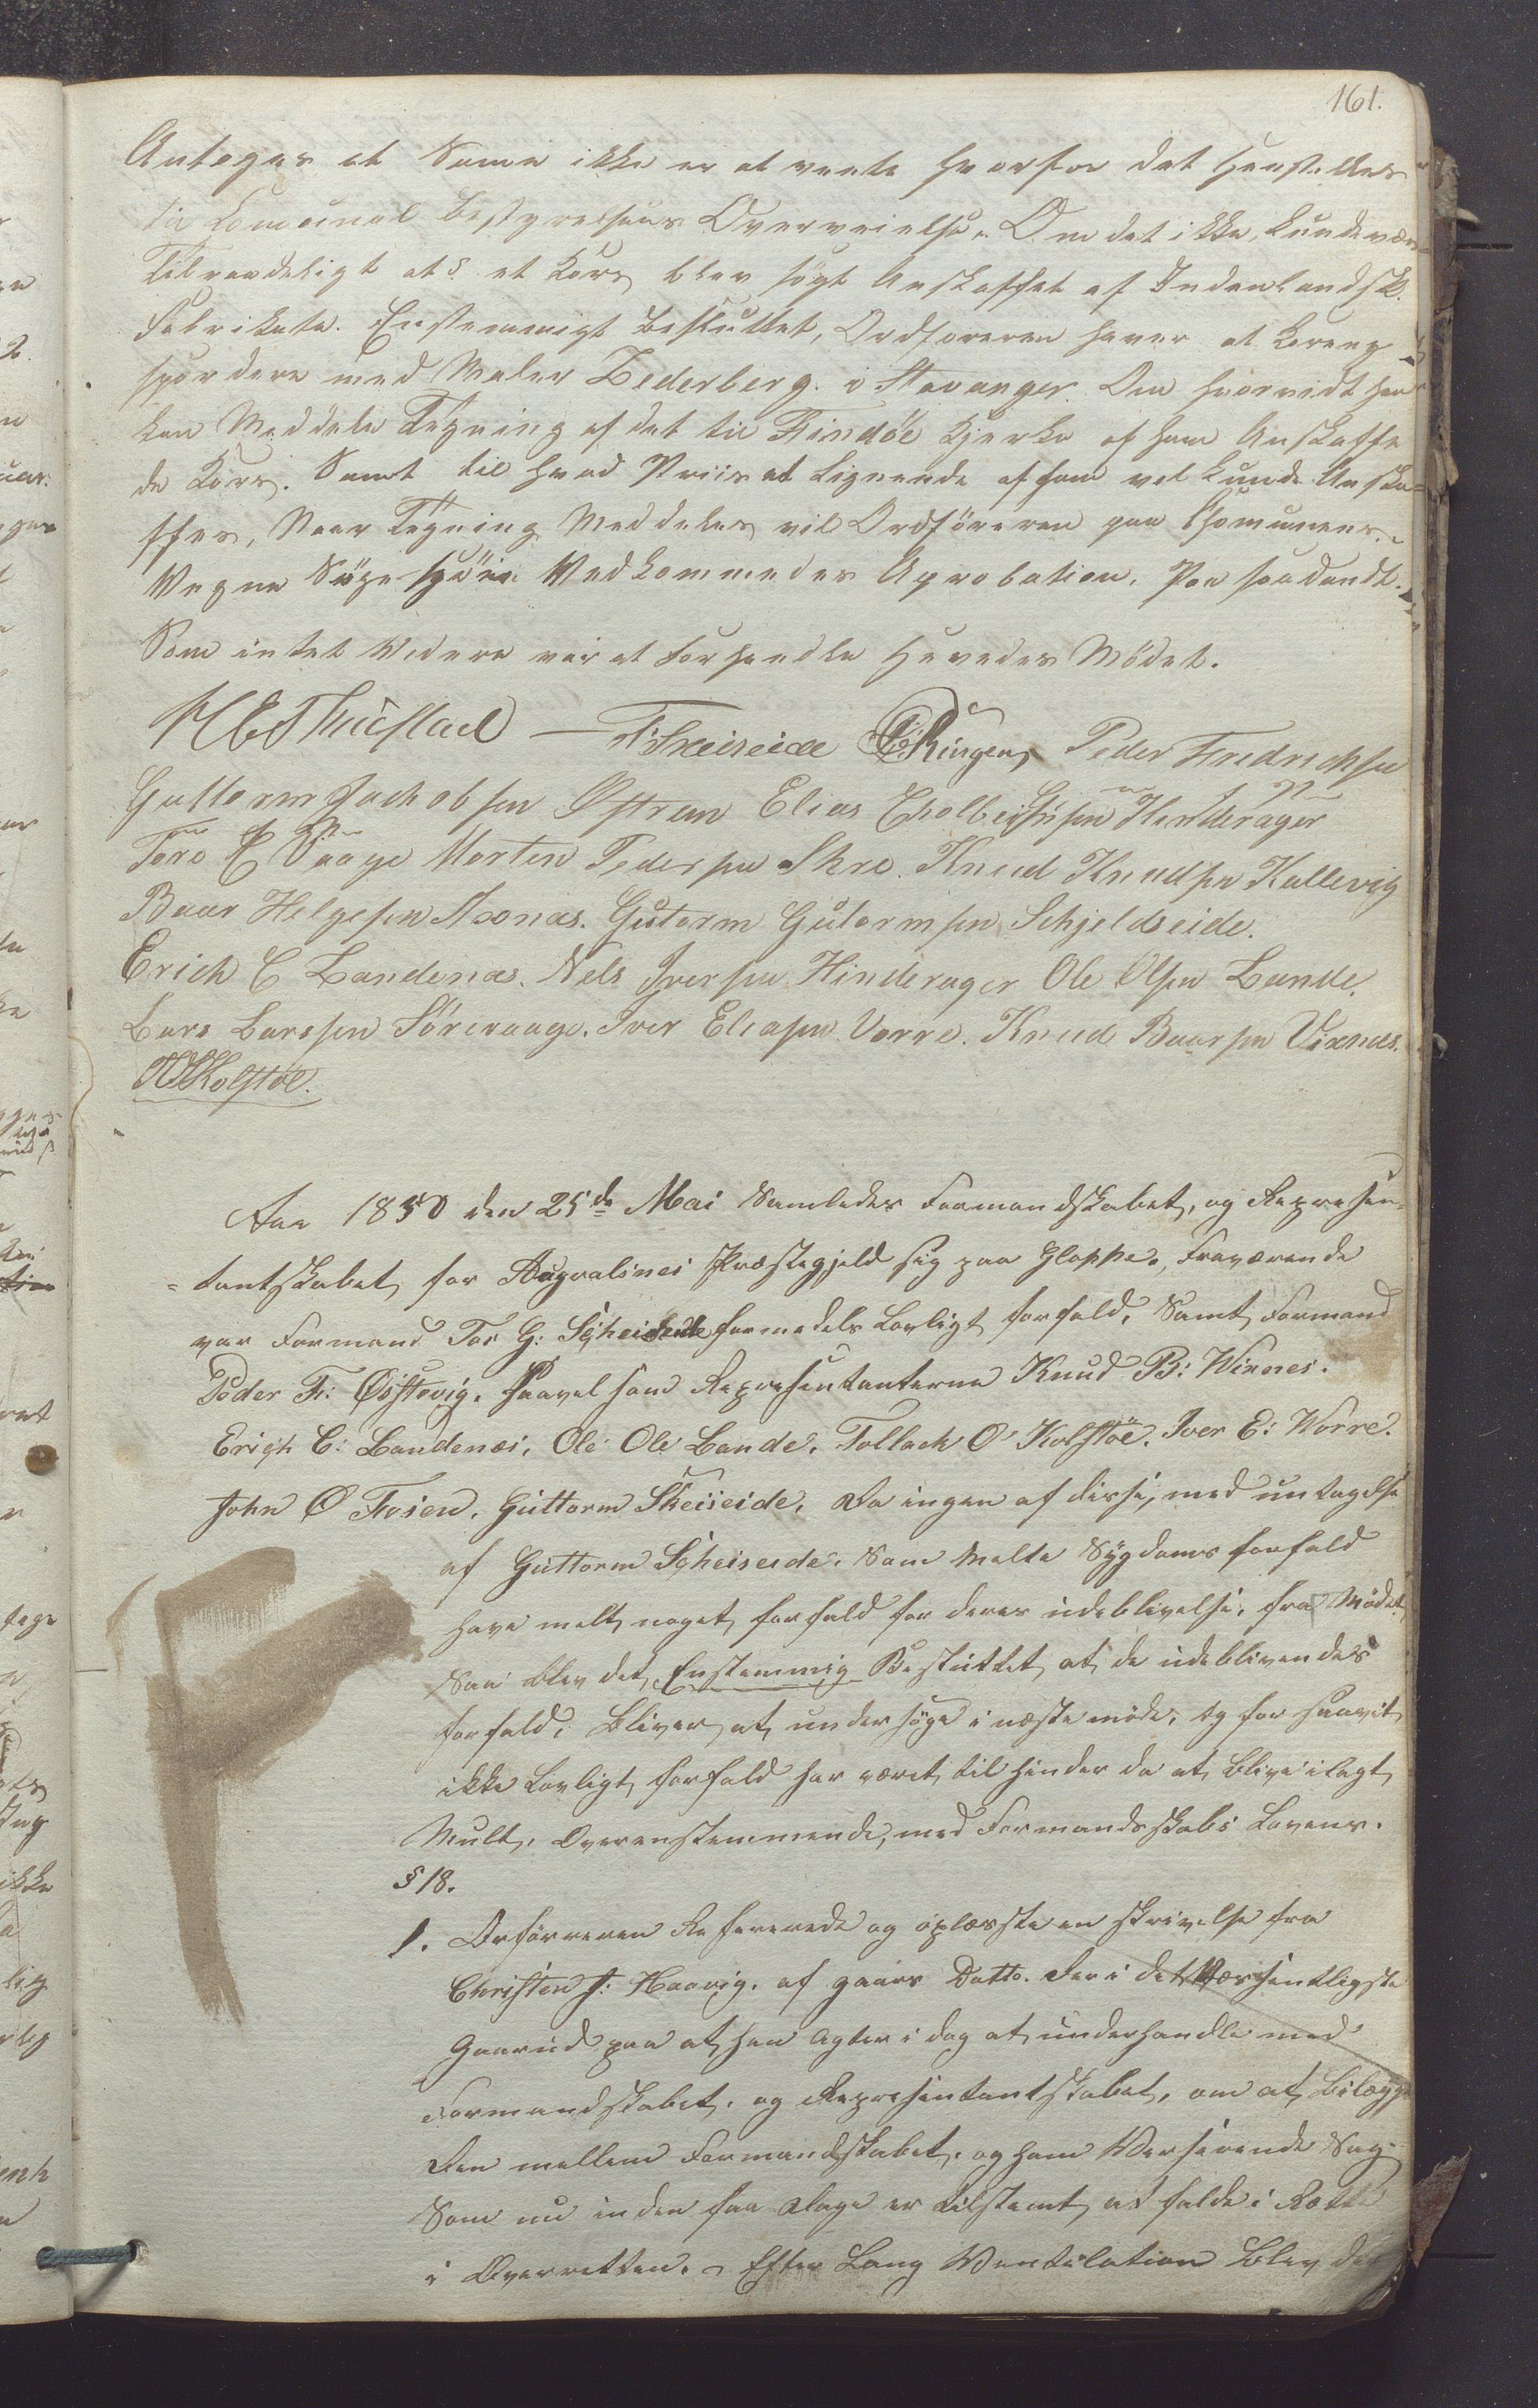 161.
Antages at Same ikke er at vente hvorfor det Henstilles
til Comunal Bestyrelsens Overveielse. Om det ikke, kunde være
Tilraadeligt at et Kors blev søgt Anskaffet af Indenlandsk
Fabrikata. Enstemmigt Besluttet, Ordføreren haver at Corong
spondere med Maler Zederberg i Stavanger. Om hvorvidt han
kan Meddele Tegning af det til Findöe Kjerke af ham Anskaffe
de Kors. Samt til hvad Priis at Lignende af ham vel kunde Anska=
ffes, Naar Tegning Meddeles vil Ordföreren paa Chomunens
Vegne Söge Vedkommedes Aprobation, Paa saadandt.
Som intet Widere var at Forhandle Hævedes Mödet.
Peder Fredrichsen
Guttorm Jachobsen Østrem Elias Hinderager
Tore E Vaage Morten Pedersen Skre. Knud Knudsen Kallevig
Baar Helgesen Axnæs. Gutorm Gutormsen Schjeldseide.
Erich C Landenæs. Nels Iversen Hinderager Ole Olsen Lande.
Lars Larssen Sörevaage. Iver Eliasen Vorre. Knud Baarsen Vixnæs.
TOKolstöe.
Aar 1850 den 25de Mai Samledes Formandskabet, og Represen-
=tantskabet for Augvalsnes Præstegjeld sig paa Gloppe, Fraværende
var Formand Tor G: Scheiseide formedels Lovligt forfald, Samt Formand
Peder Fr: Østevig. Saavel som Representanterne Knud B: Wixnes.
Erich C: Landenæs, Ole Ols Lande, Tollach O Kolstöe. Iver E: Worre.
John O Fosen, Guttorm Skeiseide, Da ingen af disse, med untagelse
af Guttorm Scheiseide, Som Melte Sÿgdoms forfald
have melt noget forfald for deres udeblivelse, fra Mödet
Saa blev det, Enstemmig Besluttet at de udeblivendes
forfald, bliver at undersöge i næste möde, og for saavit
ikke Lovligt forfald har været til hinder da at blive ilagt
Mult, Overenstemmende, med Formandsskabs Lovens.
§ 18.
1. Orförreren Refererede og oplæste en skrivelse fra
Christen J: Haavig. af gaars Datto. der i det Væsentligste
Gaarud paa at han agter i dag at underhandle med
Formandskabet, og Representantskabet, om at bilægge
Den mellem Formandskabet, og ham Verserende Sag.
Som nu inden faa dage er bestemt at falde i Rette
i Overretten. Efter Lang Ventilation blev det